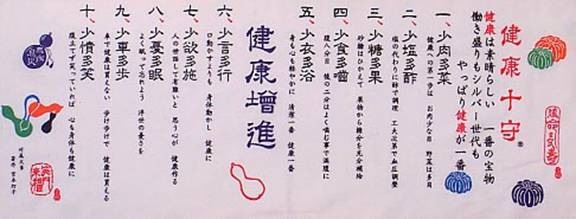 健康十守
健康は素晴らしい 一番の宝物
働き盛りもシルバー世代も
やっぱり健康が一番
一、少肉多菜
健康への第一歩は お肉少な目 野菜は多目
二、少塩多酢
塩の代わりに酢で調理 工夫次第で血圧調整
三、少糖多果
砂糖はひかえて 果物から糖分を充分補給
四、少食多噛
腹八分目 後の二分はよく噛む事で満腹に
五、少衣多浴
身も心も軽やかに 清潔一番 健康一番
健康増進
六、少言多行
口動かすよりも 身体動かし 健康に
七、少欲多施
人の世話して有難いと 思う心が 健康作る
八、少憂多眠
よく眠って忘れよう 浮世の憂さを
九、少車多歩
車で健康は買えない 歩け歩けで 健康は買える
十、少憤多笑
腹立てず笑っていれば 心も身体も健康に